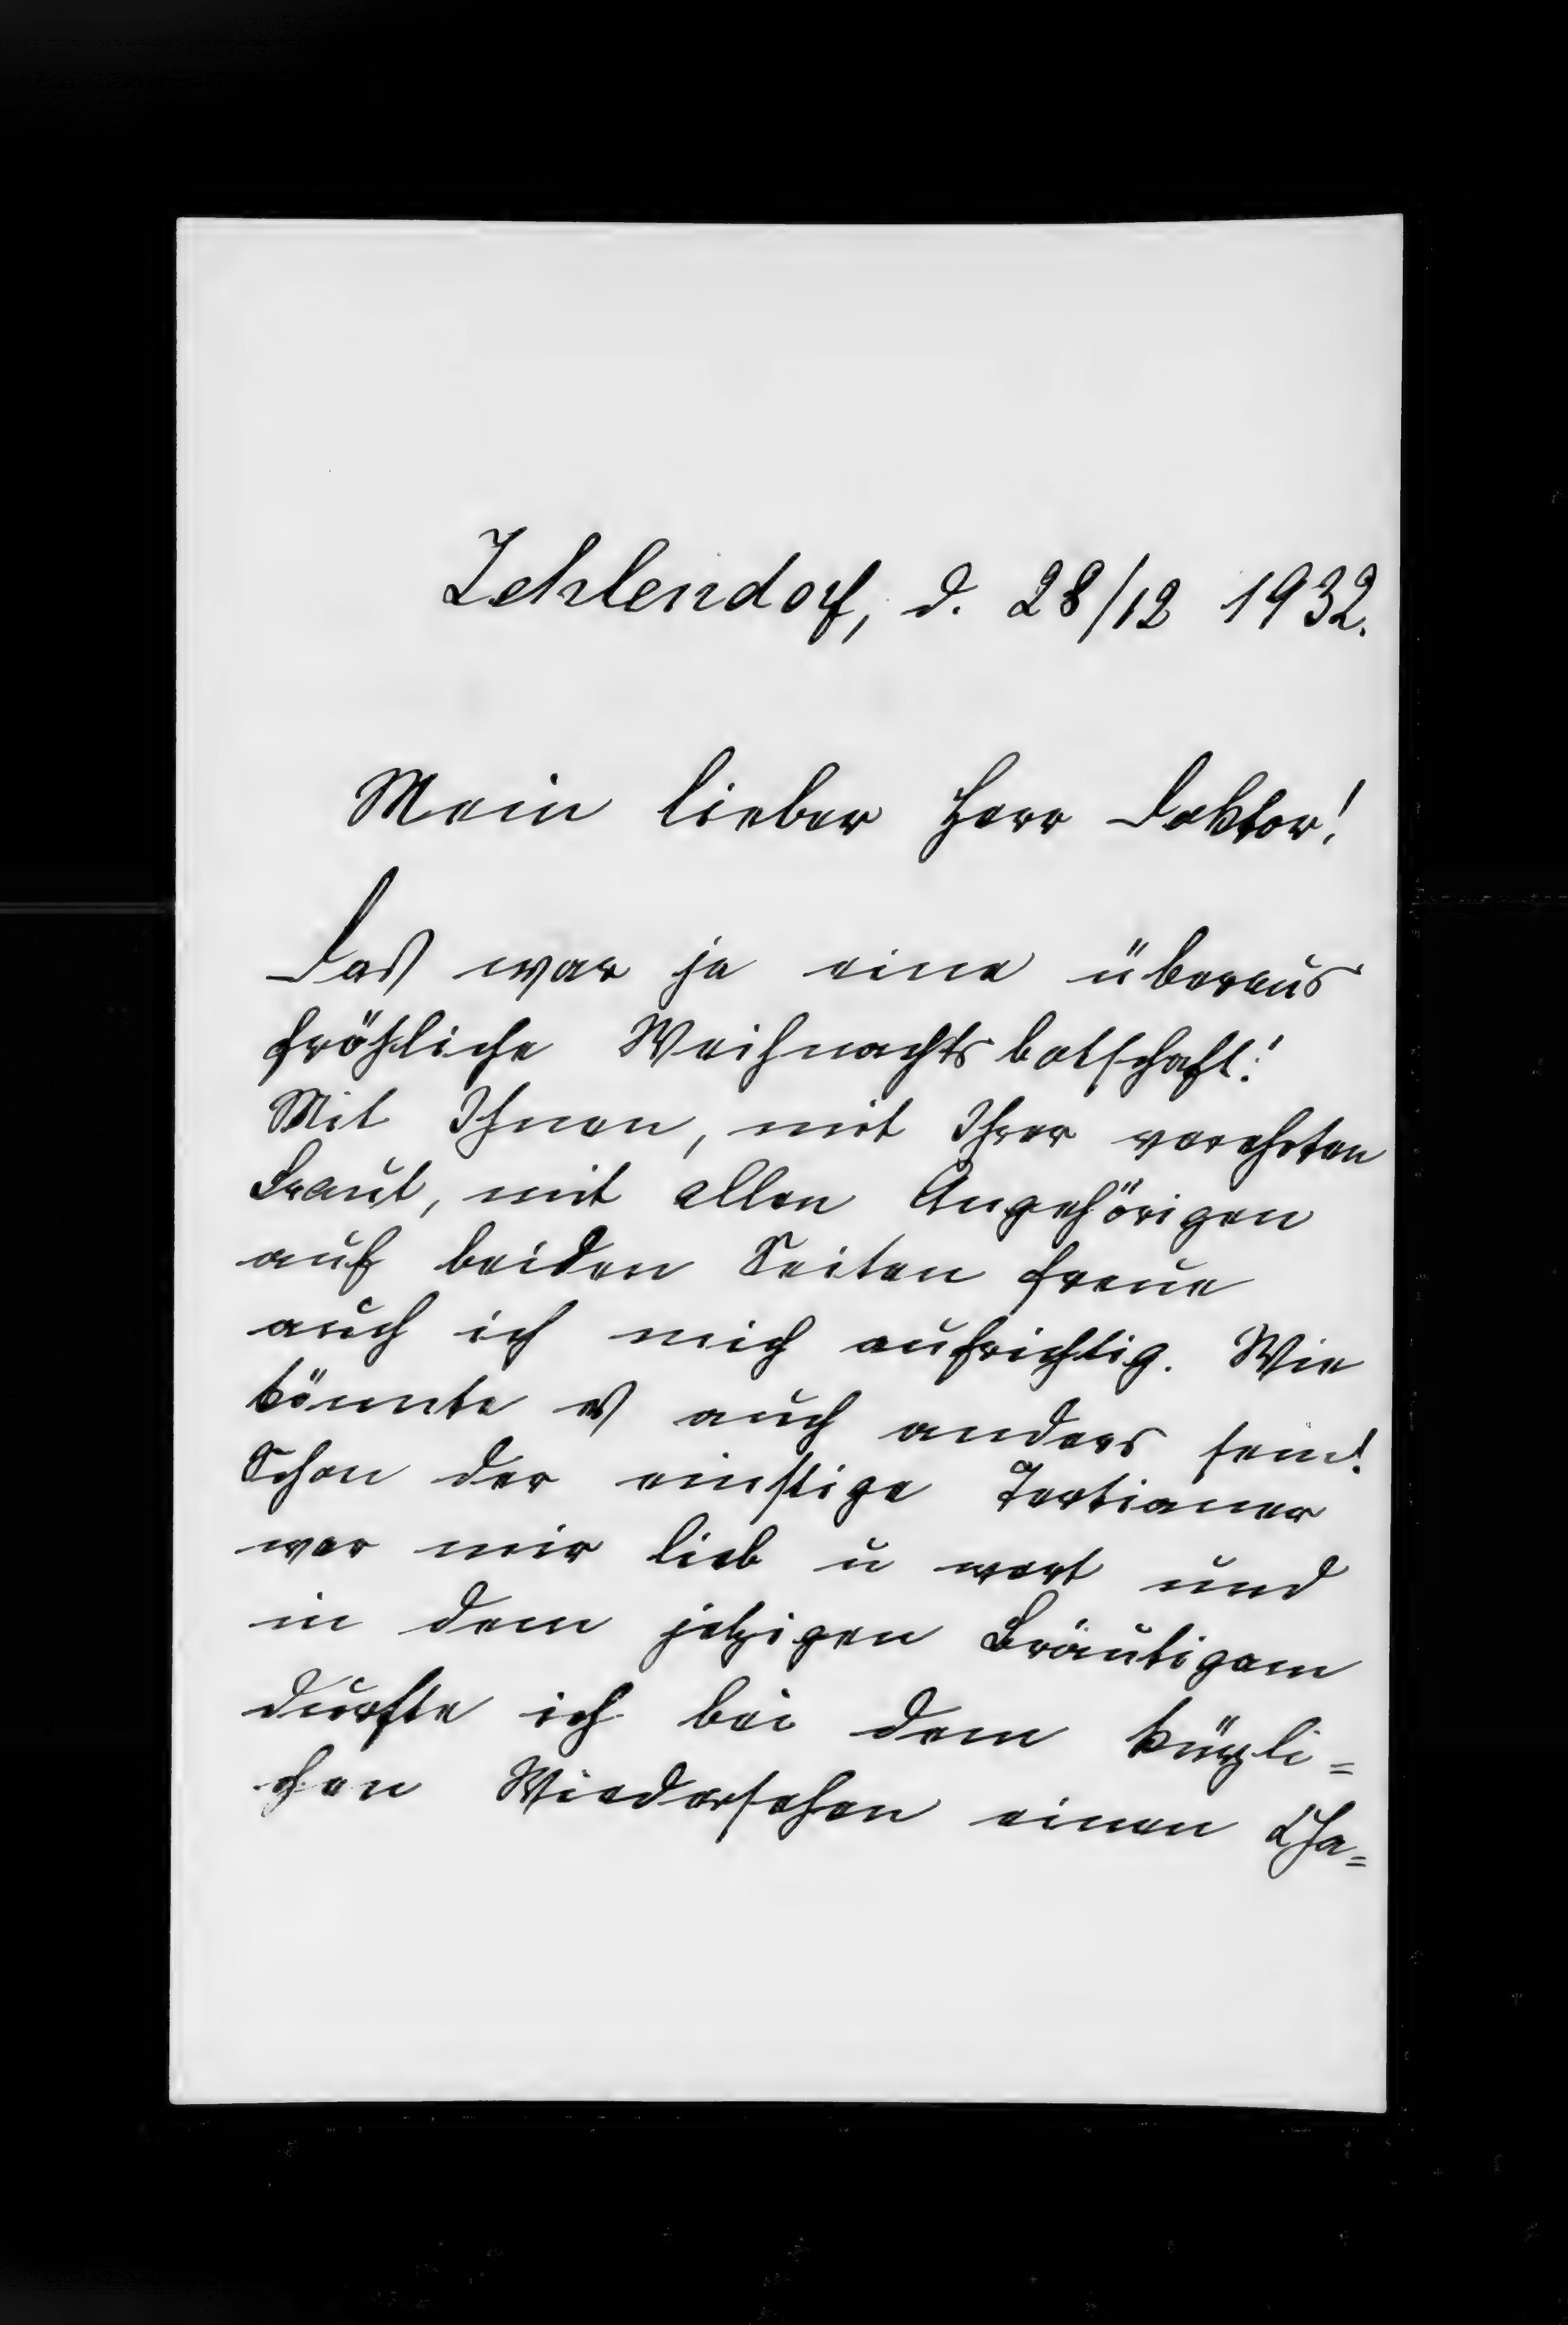 Zehlendorf, d. 28/12 1932.
Mein lieber Herr Doktor!
Das war ja eine überaus
fröhliche Weihnachtsbotschaft!
Mit Ihnen, mit Ihrer verehrten
Braut, mit allen Angehörigen
auf beiden Seiten freue
auch ich mich aufrichtig. Wie
könnte es auch anders sein!
Schon der einstige Tertianer
war mir lieb u wert und
in dem jetzigen Bräutigam
durfte ich bei dem kürzli=
chen Wiedersehen einen Cha=